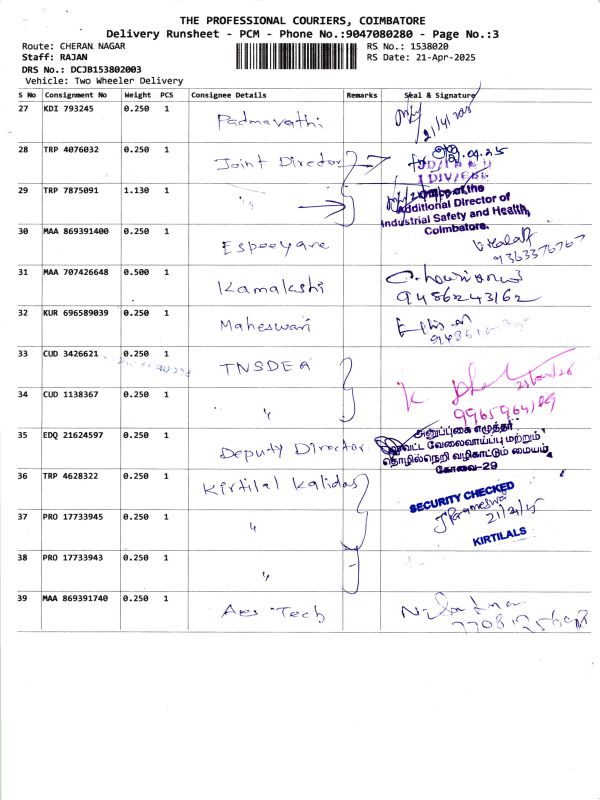 THE PROFESSIONAL COURIERS, COIMBATORE
Delivery Runsheet - PCM - Phone No.:9047080280 - Page No.:3
Route: CHERAN NAGAR
RS No.: 1538020
Staff: RAJAN
RS Date: 21-Apr-2025
DRS No.: DCJB153802003
Vehicle: Two Wheeler Delivery
S No Consignment No Weight PCS Consignee Details Remarks Seal & Signature
27 KDI 793245 0.250 1 Padmavathi
21/4/25
28 TRP 4076032 0.250 1 Joint Director
29 TRP 7875091 1.130 1 "
Office of the
Additional Director of
Industrial Safety and Health,
Coimbatore.
30 MAA 869391400 0.250 1 Espeeyare
9363376767
31 MAA 707426648 0.500 1 Kamakshi
9486243162
32 KUR 696589039 0.250 1 Maheswari
33 CUD 3426621 0.250 1 TNSDEA
34 CUD 1138367 0.250 1 "
35 EDQ 21624597 0.250 1 Deputy Director
அனுப்புகை எழுத்தர்
மாவட்ட வேலைவாய்ப்பு மற்றும்
தொழில்நெறி வழிகாட்டும் மையம்
கோவை-29
36 TRP 4628322 0.250 1 Kirtilal Kalidas
SECURITY CHECKED
37 PRO 17733945 0.250 1 "
21/4/25
KIRTILALS
38 PRO 17733943 0.250 1 "
39 MAA 869391740 0.250 1 Aes Tech